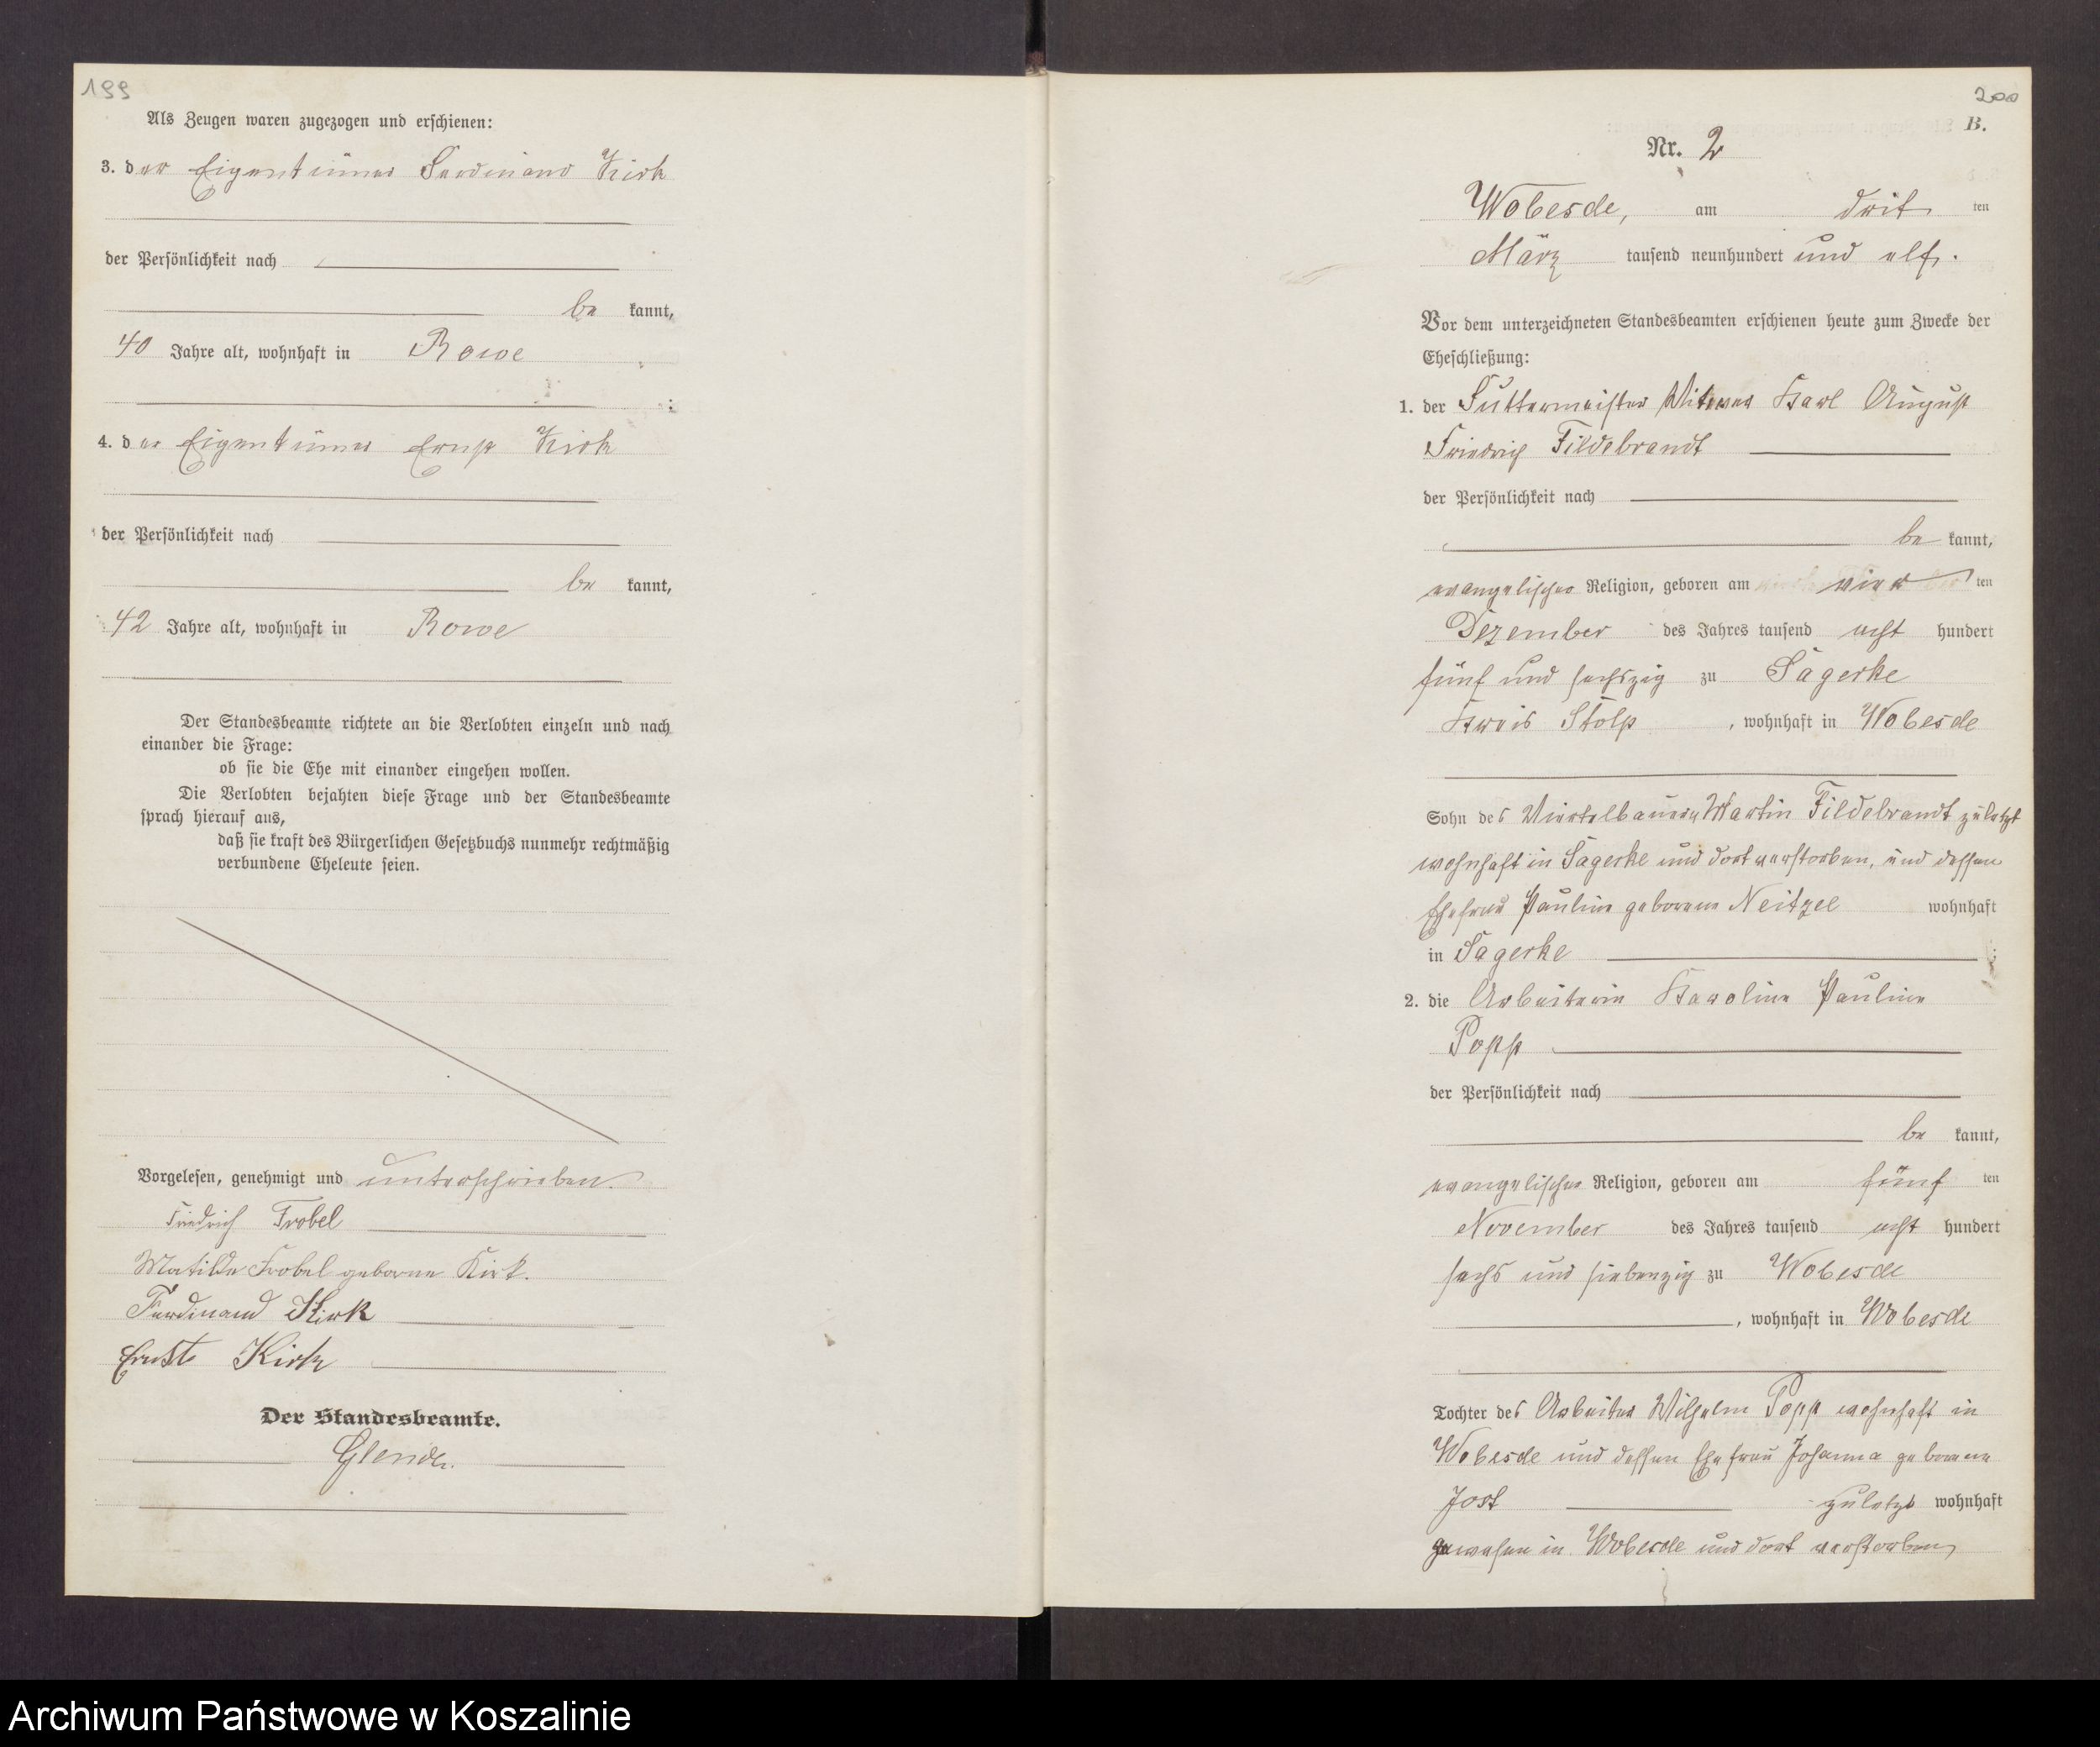 199
Als Zeugen waren zugezogen und erschienen:
3. der Eigentümer Ferdinand Kirk
der Persönlichkeit nach
be kannt,
40 Jahre alt, wohnhaft in Rowe
;
4. der Eigentümer Ernst Kirk
der Persönlichkeit nach
be kannt,
42 Jahre alt, wohnhaft in Rowe
Der Standesbeamte richtete an die Verlobten einzeln und nach
einander die Frage:
ob sie die Ehe mit einander eingehen wollen.
Die Verlobten bejahten diese Frage und der Standesbeamte
sprach hierauf aus,
daß sie kraft des Bürgerlichen Gesetzbuchs nunmehr rechtmäßig
verbundene Eheleute seien.
Vorgelesen, genehmigt und unterschrieben.
Friedrich Frobel
Matilde Frobel geborne Kirk.
Ferdinand Kirk
Ernst Kirk
Der Standesbeamte.
200
B.
Nr. 2
Wobesde, am drit ten
März tausend neunhundert und elf.
Vor dem unterzeichneten Standesbeamten erschienen heute zum Zwecke der
Eheschließung:
1. der Futtermeister Witwer Karl August
Friedrich Fildebrandt
der Persönlichkeit nach
be kannt,
evangelischer Religion, geboren am vier ten
Dezember des Jahres tausend acht hundert
fünf und sechszig zu Sagerke
Kreis Stolp, wohnhaft in Wobesde
Sohn des Viertelbauern Martin Fildebrandt zuletzt
wohnhaft in Sagerke und dort verstorben, und dessen
Ehefrau Pauline geborene Neitzel wohnhaft
in Sagerke ;
2. die Arbeiterin Karoline Pauline
Popp
der Persönlichkeit nach
be kannt,
evangelischer Religion, geboren am fünf ten
November des Jahres tausend acht hundert
sechs und siebenzig zu Wobesde
, wohnhaft in Wobesde
Tochter des Arbeiter Wilhelm Popp wohnhaft in
Wobesde und dessen Ehefrau Johanna geborene
Jost zuletzt wohnhaft
gewesen in Wobesde und dort verstorben
Archiwum Państwowe w Koszalinie